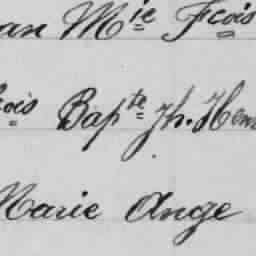 an Mie Fçois
çois Bapte Jh. Hen
Marie Ange